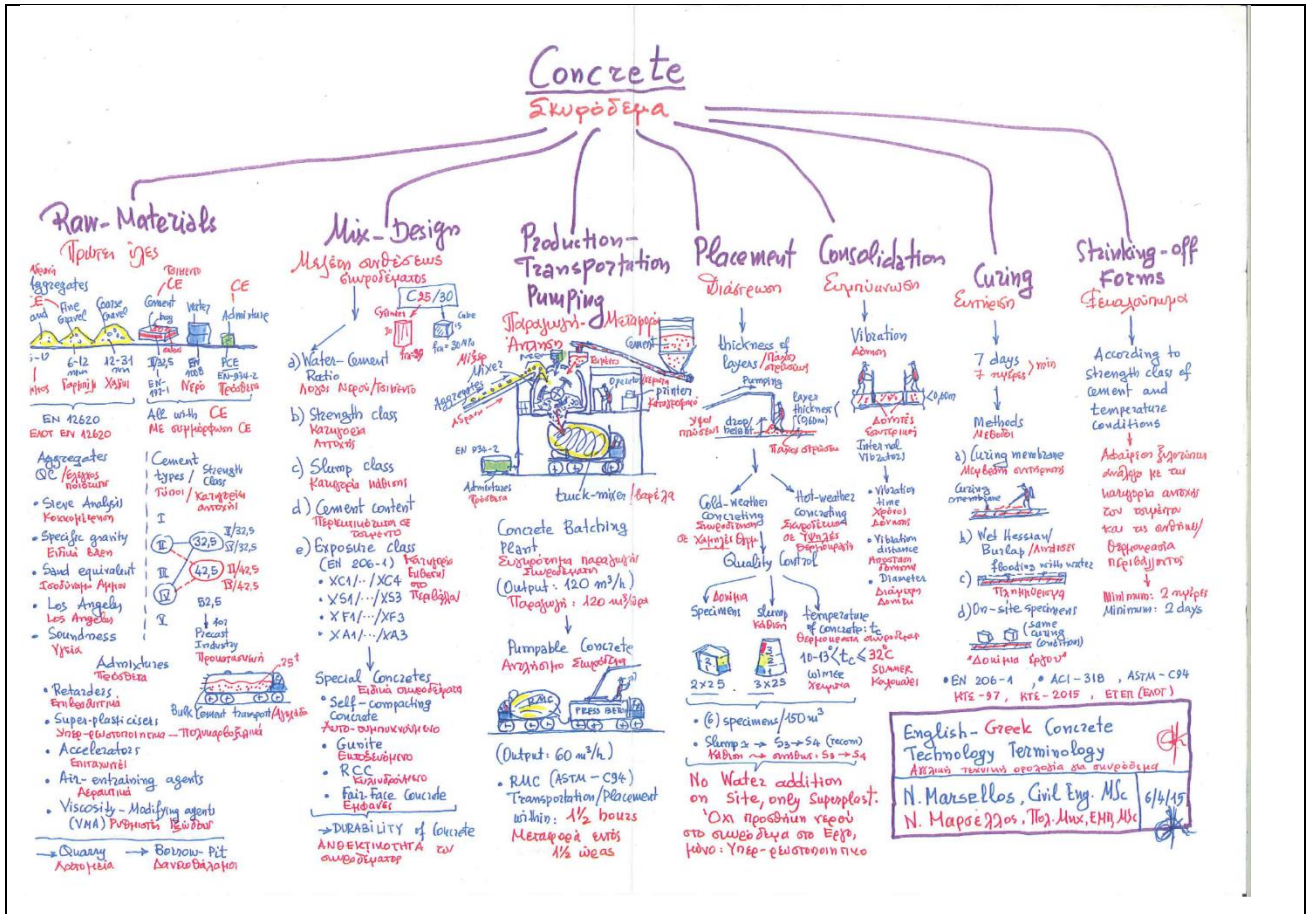 Concrete
Σκυρόδεμα
Raw-Materials
Πρώτες ύλες
Aggregates
CE
Fine Gravel
Coarse Gravel
6-12 mm
12-31 mm
Τσιμέντο
CE
Cement
bag
II/32,5
EN-197-1
Water
EN 1008
Νερό
CE
Admixture
PCE
EN-934-2
Πρόσθετα
EN 12620
ΕΛΟΤ EN 12620
All with CE
Με συμμόρφωση CE
Aggregates
QC / έλεγχος ποιότητας
• Sieve Analysis
Κοκκομέτρηση
• Specific gravity
Ειδικά βάρη
• Sand equivalent
Ισοδύναμο Άμμου
• Los Angeles
Los Angeles
• Soundness
Υγεία
Cement types / Strength Class
Τύποι / Κατηγορία αντοχής
I
II
III
IV
V
32,5
42,5
52,5
II/32,5
IV/32,5
II/42,5
IV/42,5
for
Precast Industry
Προκατασκευή
25t
Bulk Cement transport
Admixtures
Πρόσθετα
• Retarders
Επιβραδυντικά
• Super-plasticisers
Υπερ-ρευστοποιητικα - Πολυκαρβοξιλικά
• Accelerators
Επιταχυντές
• Air-entraining agents
Αερακτικά
• Viscosity-Modifying agents
(VMA) Ρυθμιστές Ιξώδους
→ Quarry
Λατομεία
→ Borrow-Pit
Δανειοθάλαμοι
Mix-Design
Μελέτη συνθέσεως σκυροδέματος
C25/30
Cylinder
30
Cube
15
a) Water-Cement Ratio
Λόγος Νερού/Τσιμέντο
b) Strength class
Κατηγορία Αντοχής
c) Slump class
Κατηγορία κάθισης
d) Cement content
Περιεκτικότητα σε τσιμέντο
e) Exposure class
(EN 206-1)
Κατηγορία Έκθεσης στο Περιβάλλον
• XC1/../XC4
• XS1/../XS3
• XF1/../XF3
• XA1/../XA3
Special Concretes
Ειδικά σκυροδέματα
• Self-compacting Concrete
Αυτο-συμπυκνούμενο
• Gunite
Εκτοξευόμενο
• RCC
Κυλινδρούμενο
• Fair-Face Concrete
Εμφανές
→ DURABILITY of Concrete
ΑΝΘΕΚΤΙΚΟΤΗΤΑ του σκυροδέματος
Production-
Transportation
Pumping
Παραγωγή-Μεταφορά
Άντληση
Mixer
Aggregates
Αδρανή
Water
Cement
Operator
printer
Καταγραφικό
EN 934-2
Admixtures
Πρόσθετα
truck-mixer/βαρέλα
Concrete Batching Plant
Συγκρότημα παραγωγής Σκυροδέματος
(Output: 120 m³/h)
Παραγωγή: 120 m³/ώρα
Pumpable Concrete
Αντλήσιμο Σκυρόδεμα
RMC
PRESS BETON
(Output: 60 m³/h)
• RMC (ASTM-C94)
Transportation/Placement
within: 1½ hours
Μεταφορά εντός
1½ ώρας
Placement
Διάστρωση
thickness of layers / πάχος στρώσεως
Pumping
drop height
Ύψος πτώσεως
layer thickness
(0,60m)
Πάχος στρώσης
Cold-weather concreting
Σκυροδέτηση σε Χαμηλές Θερμ.
Hot-weather concreting
Σκυροδέτηση σε Υψηλές Θερμοκρασίες
Quality Control
Δοκίμια
Specimens
2x25
slump
Κάθιση
3
2
1
3x25
temperature of concrete: tc
Θερμοκρασία σκυροδέματος
10-13°<tc≤32°C
WINTER
Χειμώνας
SUMMER
Καλοκαίρι
• (6) specimens/150m³
• Slump: → S3→S4 (recom)
Κάθιση → συνήθως: S3→S4
No Water addition
on Site, only Superplast.
Όχι προσθήκη νερού
στο σκυρόδεμα στο Έργο,
μόνο: Υπερ-ρευστοποιητικο
Consolidation
Συμπύκνωση
Vibration
Δόνηση
<0,60m
Δονητές
Εσωτερικοί
Internal Vibrators
• Vibration time
Χρόνος Δόνησης
• Vibration distance
Απόσταση δόνησης
• Diameter
Διάμετρος Δονητή
Curing
Συντήρηση
7 days
7 ημέρες
> min
Methods
Μέθοδοι
a) Curing membrane
Μεμβράνη συντήρησης
curing membrane
b) Wet Hessian/
Burlap/Λινάτσες
c) flooding with water
Πλημμύρισμα
d) On-site specimens
(same curing condition)
"Δοκίμια έργου"
• EN 206-1 , • ACI-318 , ASTM-C94
ΚΤΣ-97, ΚΤΣ-2015, ΕΤΕΠ (ΕΛΟΤ)
Strinking-off
Forms
Ξεκαλούπωμα
According to
strength class of
cement and
temperature
conditions
Αφαίρεση ξυλοτύπων
ανάλογα με την
κατηγορία αντοχής
του τσιμέντου
και τις συνθήκες/
θερμοκρασία
περιβάλλοντος
Minimum: 2 ημέρες
Minimum: 2 days
English-Greek Concrete
Technology Terminology
Αγγλική τεχνική ορολογία για σκυρόδεμα
N. Marsellos, Civil Eng. MSc
Ν. Μαρσέλλος, Πολ. Μηχ. ΕΜΠ, MSc
6/4/15